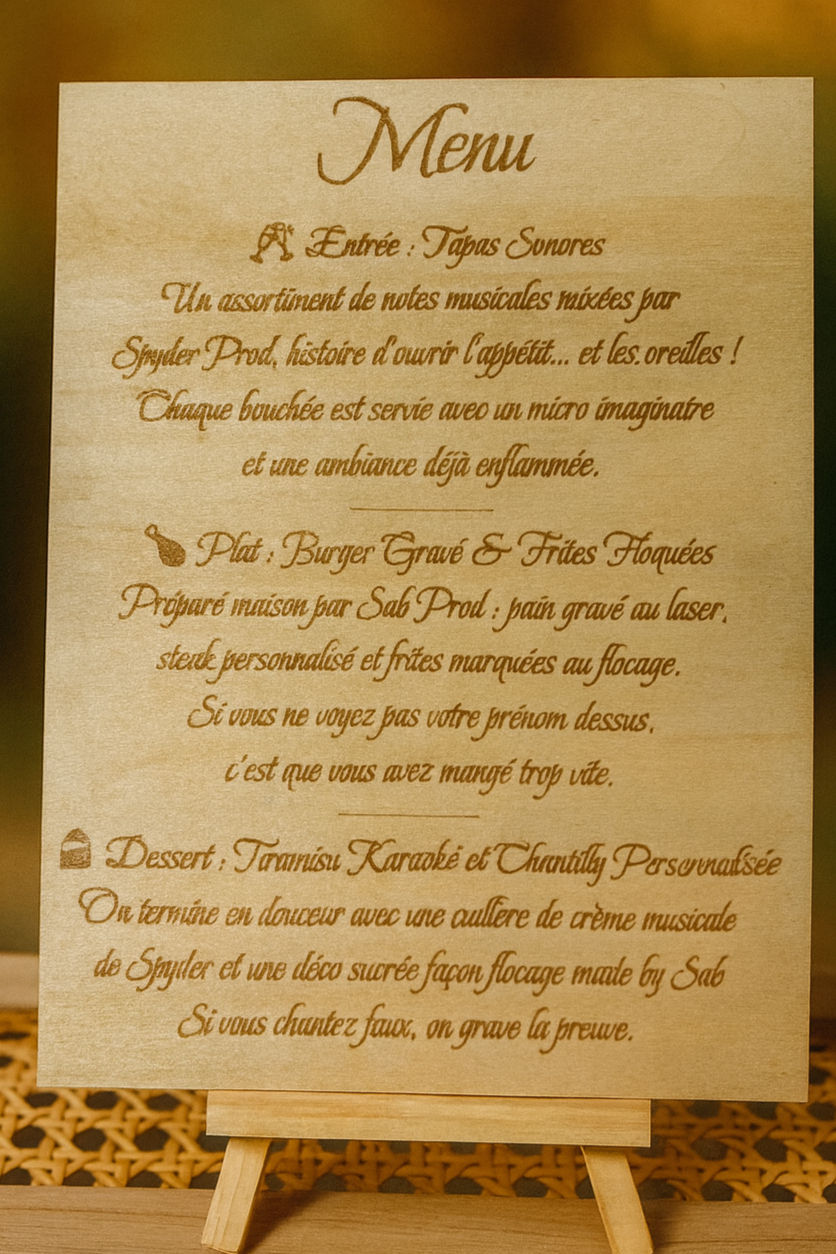 Menu
Entrée : Tapas Sonores
Un assortiment de notes musicales mixées par
Spyder Prod, histoire d'ouvrir l'appétit... et les oreilles !
Chaque bouchée est servie avec un micro imaginaire
et une ambiance déjà enflammée.
Plat : Burger Gravé & Frites Floquées
Préparé maison par Sab Prod : pain gravé au laser,
steak personnalisé et frites marquées au flocage.
Si vous ne voyez pas votre prénom dessus,
c'est que vous avez mangé trop vite.
Dessert : Tiramisu Karaoké et Chantilly Personnalisée
On termine en douceur avec une cuillère de crème musicale
de Spyder et une déco sucrée façon flocage made by Sab
Si vous chantez faux, on grave la preuve.